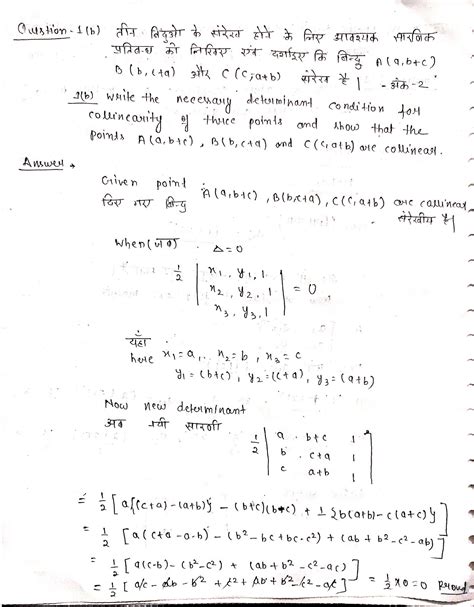 Question-1(b) तीन बिंदुओ के संरेख होने के लिए आवश्यक सारणिक
प्रतिबन्ध को लिखिए एवं दर्शाइए कि बिन्दु A(a,b+c)
B(b,c+a) और C(c,a+b) संरेख है| -अंक-2
1(b) write the necessary determinant condition for
collinearity of three points and show that the
points A(a,b+c), B(b,c+a) and C(c,a+b) are collinear.
Answer
Given point A(a,b+c), B(b,c+a), C(c,a+b) are collinear
दिए गए बिन्दु संरेखीय है|
When(जब) Δ=0
1/2 | x1, y1, 1 |
| x2, y2, 1 | = 0
| x3, y3, 1 |
यहाँ
here x1=a, x2=b, x3=c
y1=(b+c), y2=(c+a), y3=(a+b)
Now new determinant
अब नयी सारणी
1/2 | a b+c 1 |
| b c+a 1 |
| c a+b 1 |
= 1/2 [a{(c+a)-(a+b)} - (b+c)(b-c) + 1{b(a+b)-c(a+c)}]
= 1/2 [a(c+a-a-b) - (b²-bc+bc-c²) + (ab+b²-c²-ab)]
= 1/2 [a(c-b) - (b²-c²) + (ab+b²-c²-ac)]
= 1/2 [ac-ab-b²+c²+ab+b²-c²-ac] = 1/2 x0=0